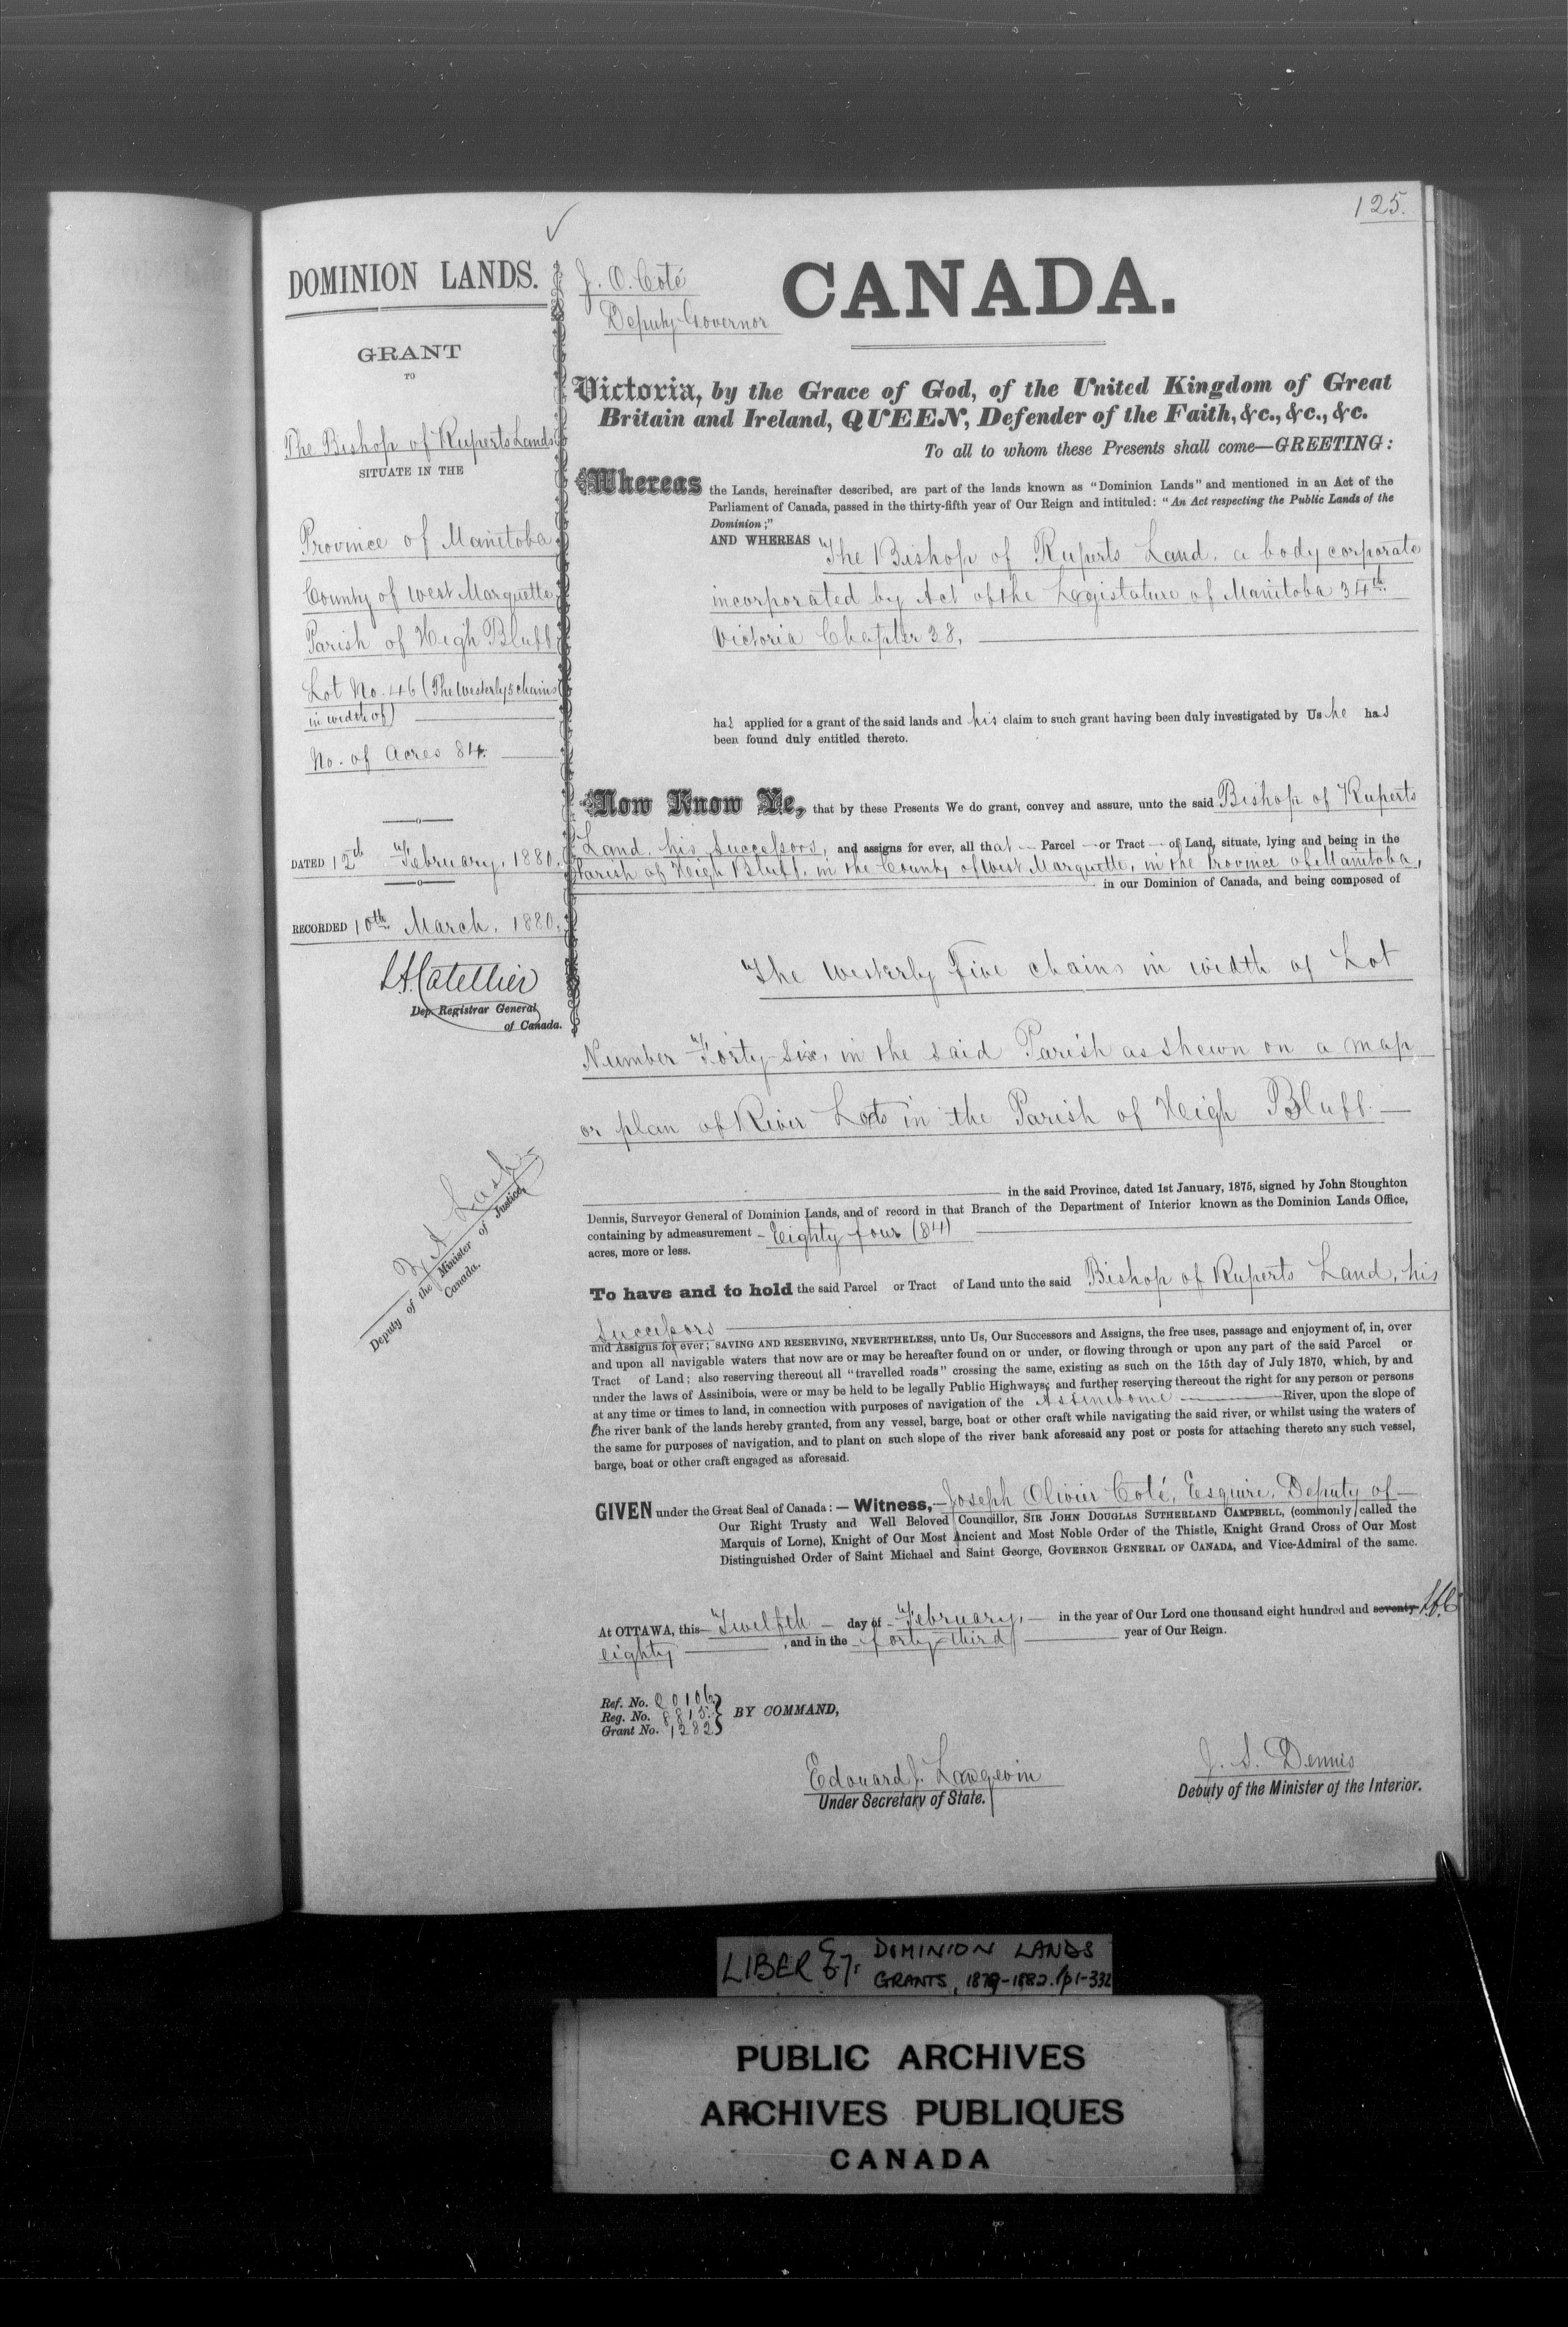 125.
DOMINION LANDS.
GRANT
TO
The Bishop of Ruperts Lands
SITUATE IN THE
Province of Manitoba
County of West Marquette
Parish of High Bluff
Lot No. 46 (The Westerly 5 chains
in width of)
No. of Acres 84.
DATED 12th February, 1880.
RECORDED 10th March, 1880.
L.A. Catellier
Dep. Registrar General
of Canada.
Z A Lash
Deputy of the Minister of Justice,
Canada.
J. O. Coté
Deputy Governor
CANADA.
Victoria, by the Grace of God, of the United Kingdom of Great
Britain and Ireland, QUEEN, Defender of the Faith, &c., &c., &c.
To all to whom these Presents shall come—GREETING:
Whereas the Lands, hereinafter described, are part of the lands known as "Dominion Lands" and mentioned in an Act of the
Parliament of Canada, passed in the thirty-fifth year of Our Reign and intituled: "An Act respecting the Public Lands of the
Dominion;"
AND WHEREAS The Bishop of Ruperts Land, a body corporate
incorporated by Act of the Legislature of Manitoba 34th
Victoria Chapter 38,
has applied for a grant of the said lands and his claim to such grant having been duly investigated by Us he had
been found duly entitled thereto.
Now Know Ye, that by these Presents We do grant, convey and assure, unto the said Bishop of Ruperts
Land, his Successors, and assigns for ever, all that Parcel or Tract of Land, situate, lying and being in the
Parish of High Bluff, in the County of West Marquette, in the Province of Manitoba,
in our Dominion of Canada, and being composed of
The Westerly Five chains in width of Lot
Number Forty-Six, in the said Parish as shewn on a map
or plan of River Lots in the Parish of High Bluff.—
in the said Province, dated 1st January, 1875, signed by John Stoughton
Dennis, Surveyor General of Dominion Lands, and of record in that Branch of the Department of Interior known as the Dominion Lands Office,
containing by admeasurement — Eighty four (84)
acres, more or less.
To have and to hold the said Parcel or Tract of Land unto the said Bishop of Ruperts Land, his
Successors
and Assigns for ever; SAVING AND RESERVING, NEVERTHELESS, unto Us, Our Successors and Assigns, the free uses, passage and enjoyment of, in, over
and upon all navigable waters that now are or may be hereafter found on or under, or flowing through or upon any part of the said Parcel or
Tract of Land; also reserving thereout all "travelled roads" crossing the same, existing as such on the 15th day of July 1870, which, by and
under the laws of Assiniboia, were or may be held to be legally Public Highways; and further reserving thereout the right for any person or persons
at any time or times to land, in connection with purposes of navigation of the Assiniboine River, upon the slope of
the river bank of the lands hereby granted, from any vessel, barge, boat or other craft while navigating the said river, or whilst using the waters of
the same for purposes of navigation, and to plant on such slope of the river bank aforesaid any post or posts for attaching thereto any such vessel,
barge, boat or other craft engaged as aforesaid.
GIVEN under the Great Seal of Canada: — Witness,—Joseph Olivier Coté, Esquire, Deputy of—
Our Right Trusty and Well Beloved Councillor, SIR JOHN DOUGLAS SUTHERLAND CAMPBELL, (commonly called the
Marquis of Lorne), Knight of Our Most Ancient and Most Noble Order of the Thistle, Knight Grand Cross of Our Most
Distinguished Order of Saint Michael and Saint George, GOVERNOR GENERAL OF CANADA, and Vice-Admiral of the same.
At OTTAWA, this— Twelfth — day of — February, — in the year of Our Lord one thousand eight hundred and seventy
eighty, and in the forty-third year of Our Reign.
Ref. No. 20106
Reg. No. 8815.
Grant No. 1282
BY COMMAND,
Edouard J. Langevin
Under Secretary of State.
J. S. Dennis
Deputy of the Minister of the Interior.
LIBER DOMINION LANDS
GRANTS, 1879-1882. pp1-332
PUBLIC ARCHIVES
ARCHIVES PUBLIQUES
CANADA